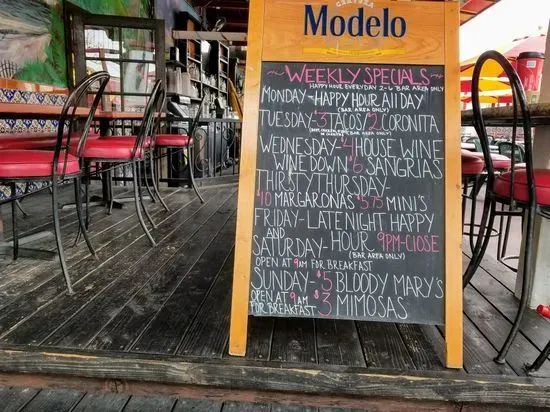 CERVEZA
Modelo
~WEEKLY SPECIALS~
HAPPY HOUR EVERYDAY 2-6 BAR AREA ONLY)
MONDAY-HAPPY HOUR All DAY
(BAR AREA ONLY)
TUESDAY-$3 TACOS/$2 CORONITA
BAR AREA ONLY)
WEDNESDAY-$4 HOUSE WINE
WINE DOWN $6 SANGRIAS
THIRSTY THURSDAY-
$10 MARGARONAS $5.75 MINI'S
FRIDAY-LATE NIGHT HAPPY
AND
SATURDAY-HOUR 9PM-CLOSE
(BAR AREA ONLY)
OPEN AT 9AM FOR BREAKFAST
SUNDAY-$5 BLOODY MARY'S
OPEN AT 9AM $3 MIMOSAS
FOR BREAKFAST